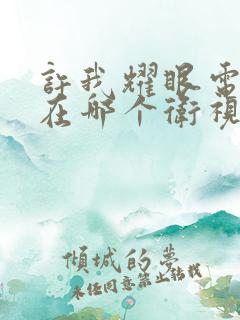 許我耀眼電
在哪个衛視
傾城的夢
未经同意禁止转载